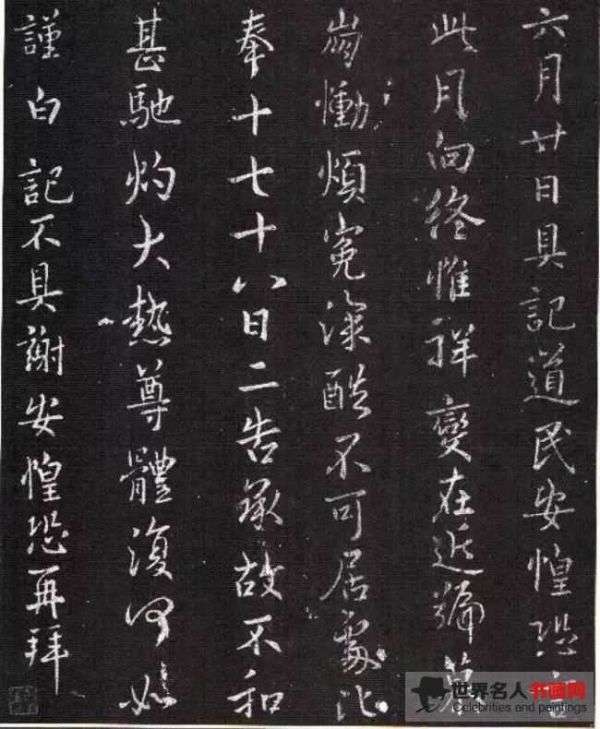 六月廿日具記道民安惶恐言
此月向終惟祥變在近號慕
崩慟煩寃深酷不可居處比
奉十七十八日二告承故不和
甚馳灼大熱尊體復何如
謹白記不具謝安惶恐再拜
世界名人书画网
Celebrities and paintings